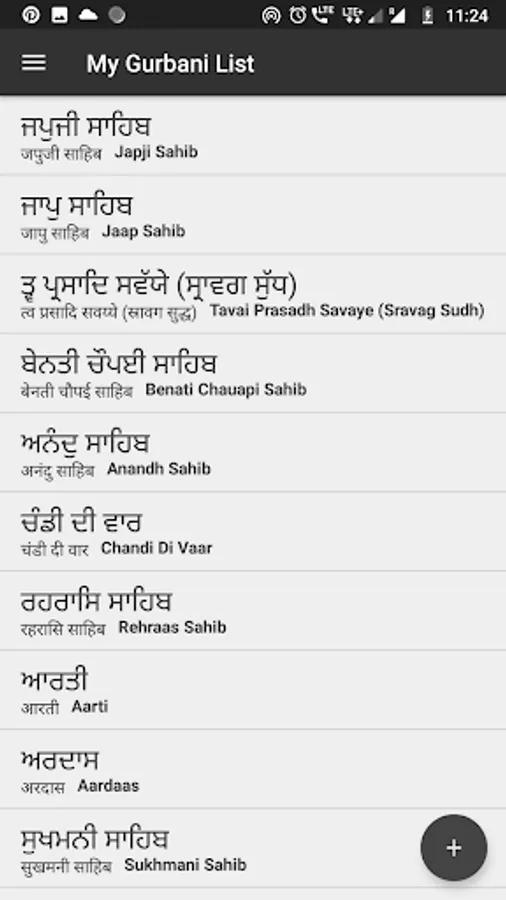 LTE LTE+ R 11:24
My Gurbani List
ਜਪੁਜੀ ਸਾਹਿਬ
जपुजी साहिब Japji Sahib
ਜਾਪੁ ਸਾਹਿਬ
जापु साहिब Jaap Sahib
ਤ੍ਵ ਪ੍ਰਸਾਦਿ ਸਵੱਯੇ (ਸ੍ਰਾਵਗ ਸੁੱਧ)
त्व प्रसादि सवय्ये (स्रावग सुद्ध) Tavai Prasadh Savaye (Sravag Sudh)
ਬੇਨਤੀ ਚੌਪਈ ਸਾਹਿਬ
बेनती चौपई साहिब Benati Chauapi Sahib
ਅਨੰਦੁ ਸਾਹਿਬ
अनंदु साहिब Anandh Sahib
ਚੰਡੀ ਦੀ ਵਾਰ
चंडी दी वार Chandi Di Vaar
ਰਹਰਾਸਿ ਸਾਹਿਬ
रहरासि साहिब Rehraas Sahib
ਆਰਤੀ
आरती Aarti
ਅਰਦਾਸ
अरदास Aardaas
ਸੁਖਮਨੀ ਸਾਹਿਬ
सुखमनी साहिब Sukhmani Sahib